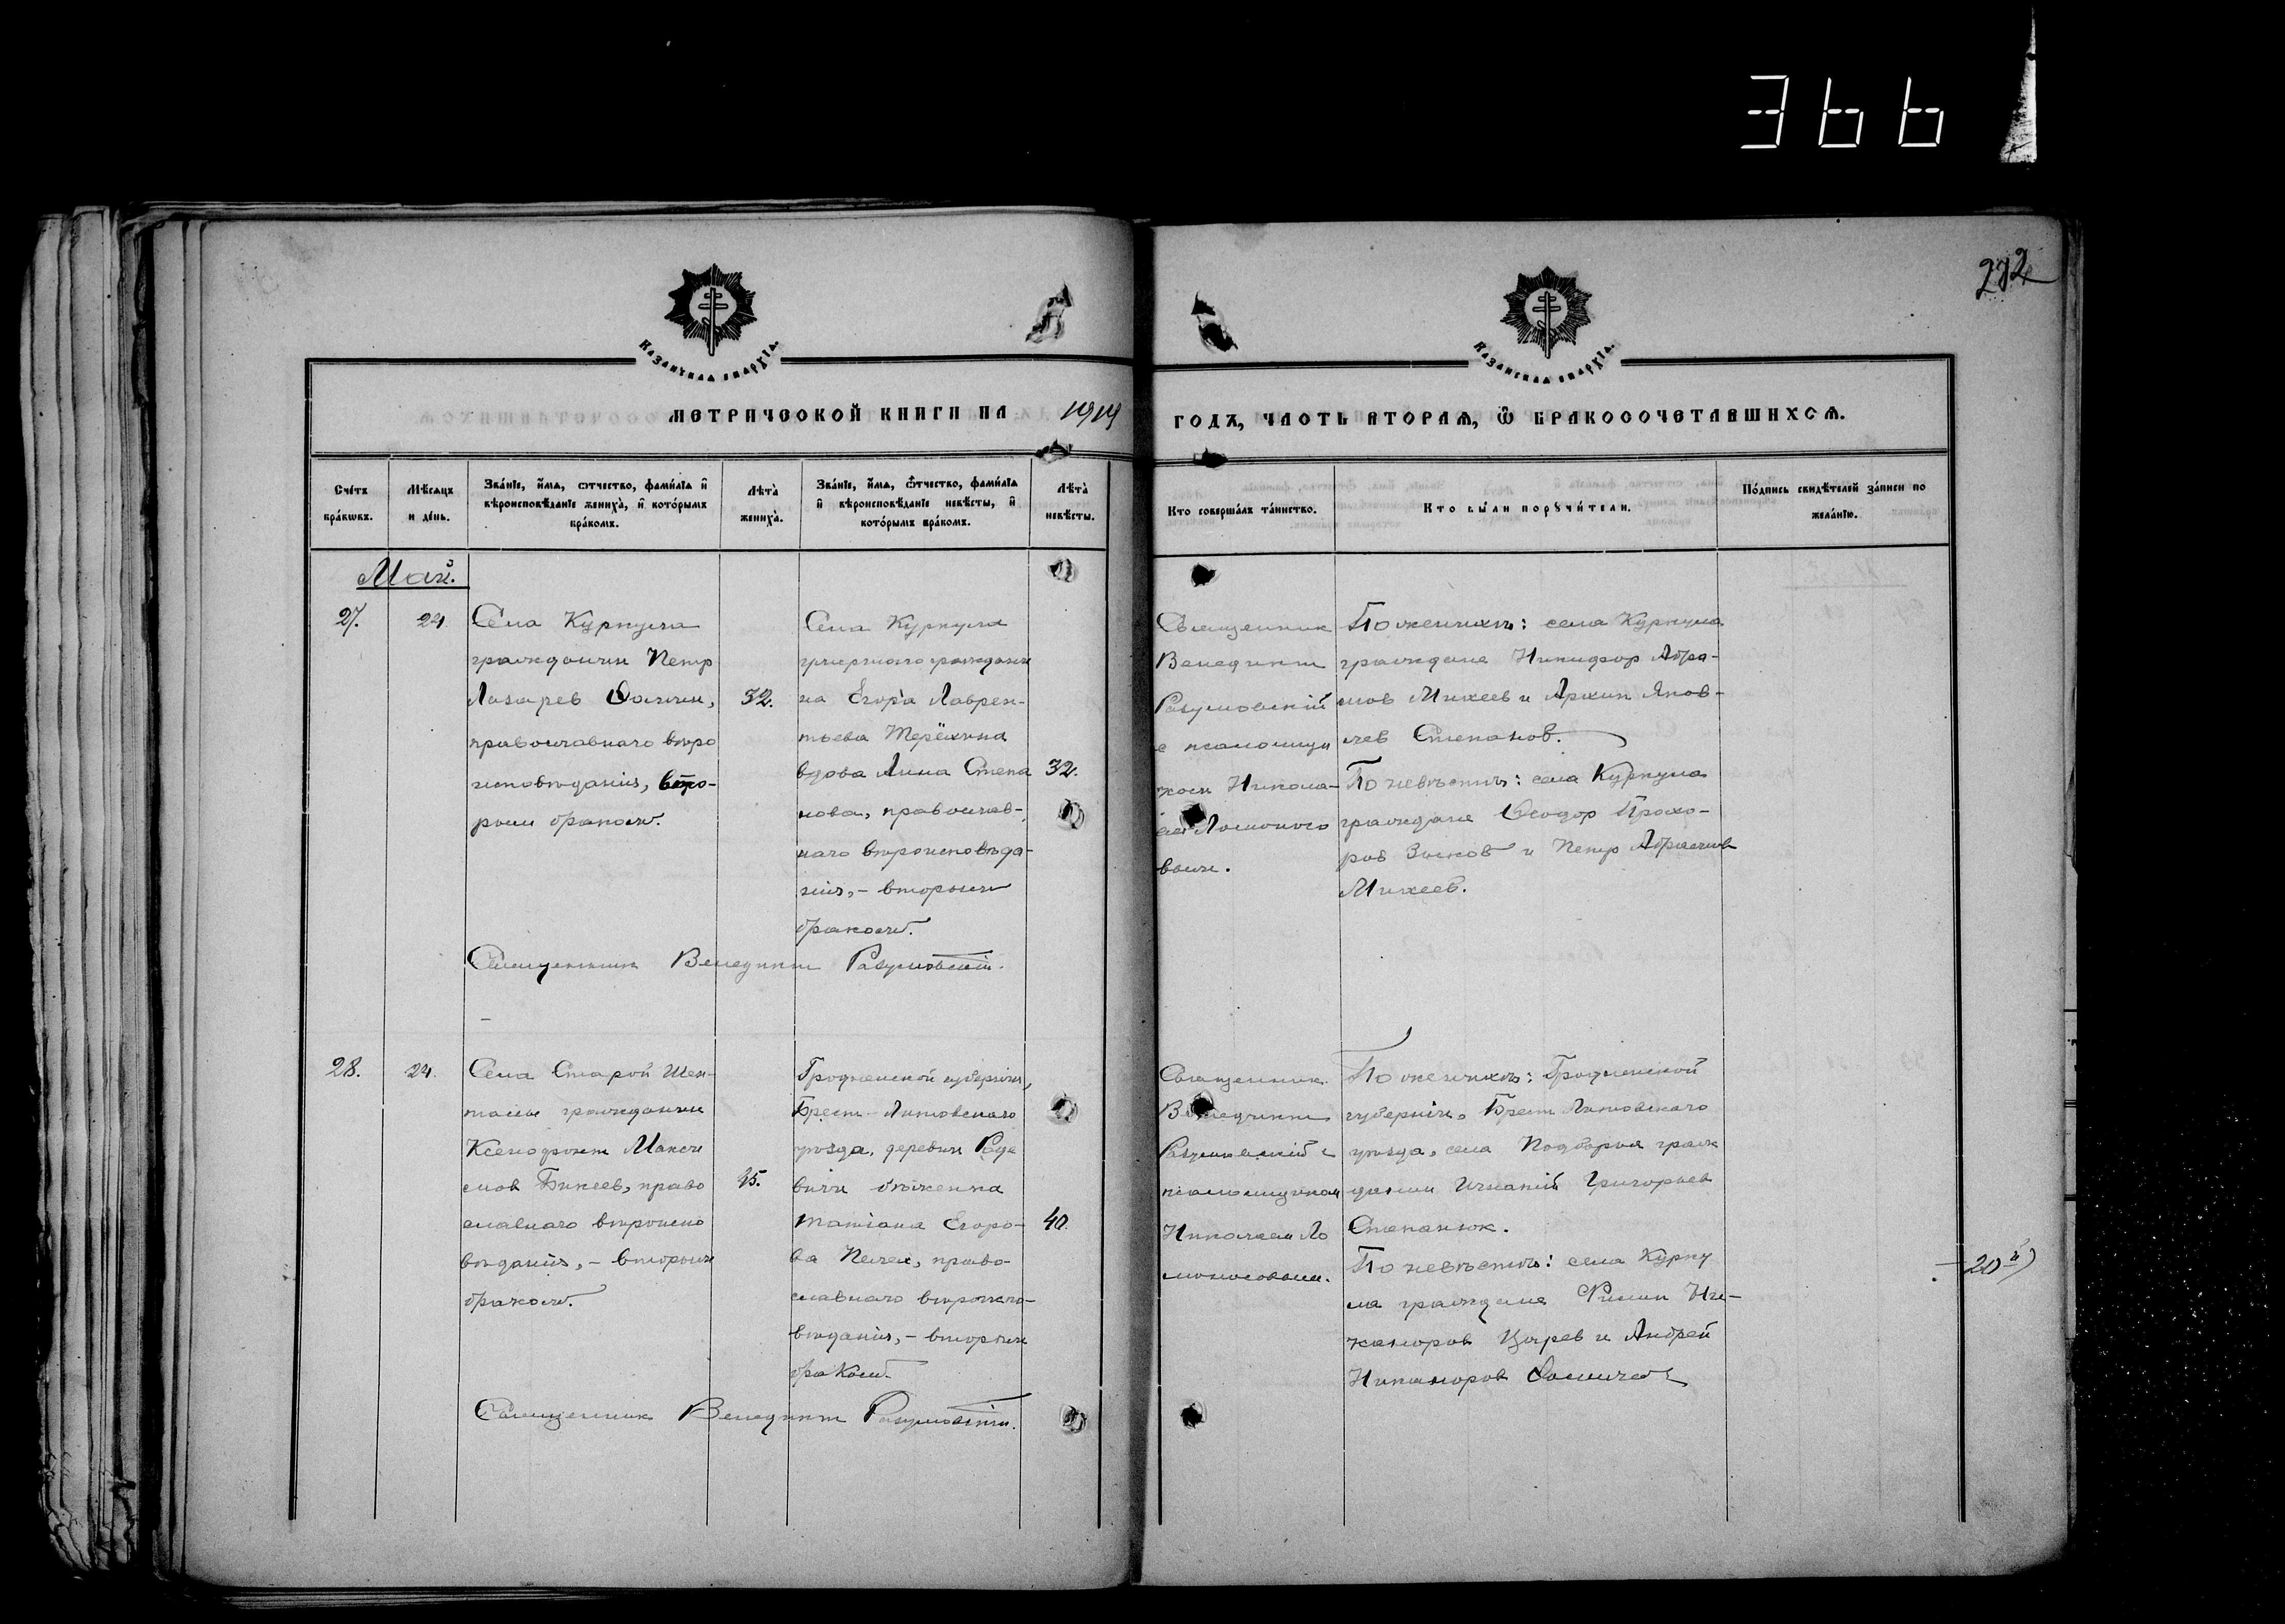 366
272
КАЗАНСКАѦ ЕПАРХІѦ.
КАЗАНСКАѦ ЕПАРХІѦ.
МЕТРИЧЕСКОЙ КНИГИ НА 1919 ГОДЪ, ЧАСТЬ ВТОРАѦ, Ѿ БРАКОСОЧЕТАВШИХСѦ.
Сче́тъ бра́кѡвъ.
Мѣ́сѧцъ и де́нь.
Зва́нїе, и́мѧ, ѻтчество, фами́лїа и҆ вѣроисповѣ́данїе жениха̀, и҆ кото́рымъ бра́комъ.
Лѣта̀ жениха̀.
Зва́нїе, и́мѧ, ѻ́тчество, фами́лїа и҆ вѣроисповѣ́данїе невѣ́сты, и҆ кото́рымъ бра́комъ.
Лѣта̀ невѣ́сты.
Кто соверша́лъ та́инство.
Кто бы́ли порꙋчи́тели.
По́дпись свидѣ́телей за́писи по жела́нїю.
Май.
27.
24.
Села Куркула
гражданин Петр
Лазарев
православнаго вѣро
исповѣданія, вто-
рым браком.
32.
Села Куркула
умершаго граждани
на Егора Лаврен-
тьева Терёхина
вдова Анна Степа
нова, православ-
наго вѣроисповѣда-
нія, - вторым
браком.
32.
Священник
Венедикт
Разумовскій
с псаломщи
ком Никола-
ем Ломоносо
вым.
По женихѣ: села Куркула
граждане Никифор Абра-
мов Михеев и Архип Яков-
лев Степанов.
По невѣстѣ: села Куркула
граждане Ѳеодор Прохо-
ров Зыков и Петр Абрамов
Михеев.
Священник Венедикт Разумовскій.
28.
24.
Села Старой Шен-
талы гражданин
Ксенофонт Макси
мов Бикеев, право
славнаго вѣроиспо
вѣданія, - вторым
браком.
45.
Гродненской губерніи,
Брест-Литовскаго
уѣзда, деревни
бѣженка
Татіана Егоро-
ва право-
славнаго вѣроиспо-
вѣданія, - вторым
браком.
40.
Священник
Венедикт
Разумовскій с
псаломщиком
Николаем Ло
моносовым.
По женихѣ: Гродненской
губерніи, Брест Литовскаго
уѣзда, села граж
данин Игнатій Григорьев
Степанюк.
По невѣстѣ: села Курку
ла граждане Филип Ни-
каноров и Андрей
Никаноров
Священник Венедикт Разумовскій.